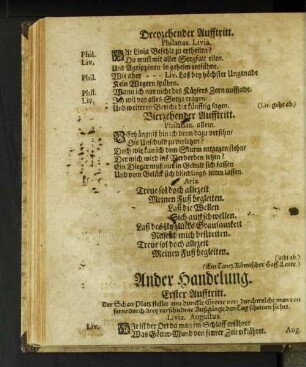 Dreyzehender Aufftritt.
Philanax. Livia.
Phil. Hat Livia Befehle zu ertheilen?
Liv. Du must mit aller Sorgfalt eilen,
Und Agrippinen in geheim entführen.
Phil. Wie aber - - - Liv. Laß bey höchster Ungenade
Kein Wegern spühren.
Phil. Wann ich nur nicht des Käysers Zorn auflade.
Liv. Ich wil vor alles Sorge tragen:
Und weiteren Bericht dir künfftig sagen. (Liv. geht ab.)
Vierzehender Aufftritt.
Philanax. allein.
Verhängnis bin ich denn dazu versehn/
Die Unschuld zu verletzen?
Doch wie kan ich dem Sturm entgegen stehn/
Der mich wird ins Verderben setzen?
Ein Diener muß nur in Gedult sich fassen
Und vom Gelück sich blindlings leiten lassen.
Aria.
Treue sol doch allezeit
Meinen Fuß begleiten.
Laß die Wellen
Sich auffschwellen.
Laß des Unglücks Grausamkeit
mich bestreiten.
Treue sol doch allezeit
Meinen Fuß begleiten.
(geht ab.)
(Ein Tantz Römischer Hoff-Leute.)
Ander Handelung.
Erster Aufftritt.
Der Schau-Platz stellet eine dunckle Grotte vor, durch welche man von
ferne durch drey verschiedene Außgänge den Tag scheinen siehet.
Livia. Augustus.
Liv. Hie ist der Ort da man im Schloß erfähret
Was Götter-Mund von ferner Zeit erklähret.
Aug.